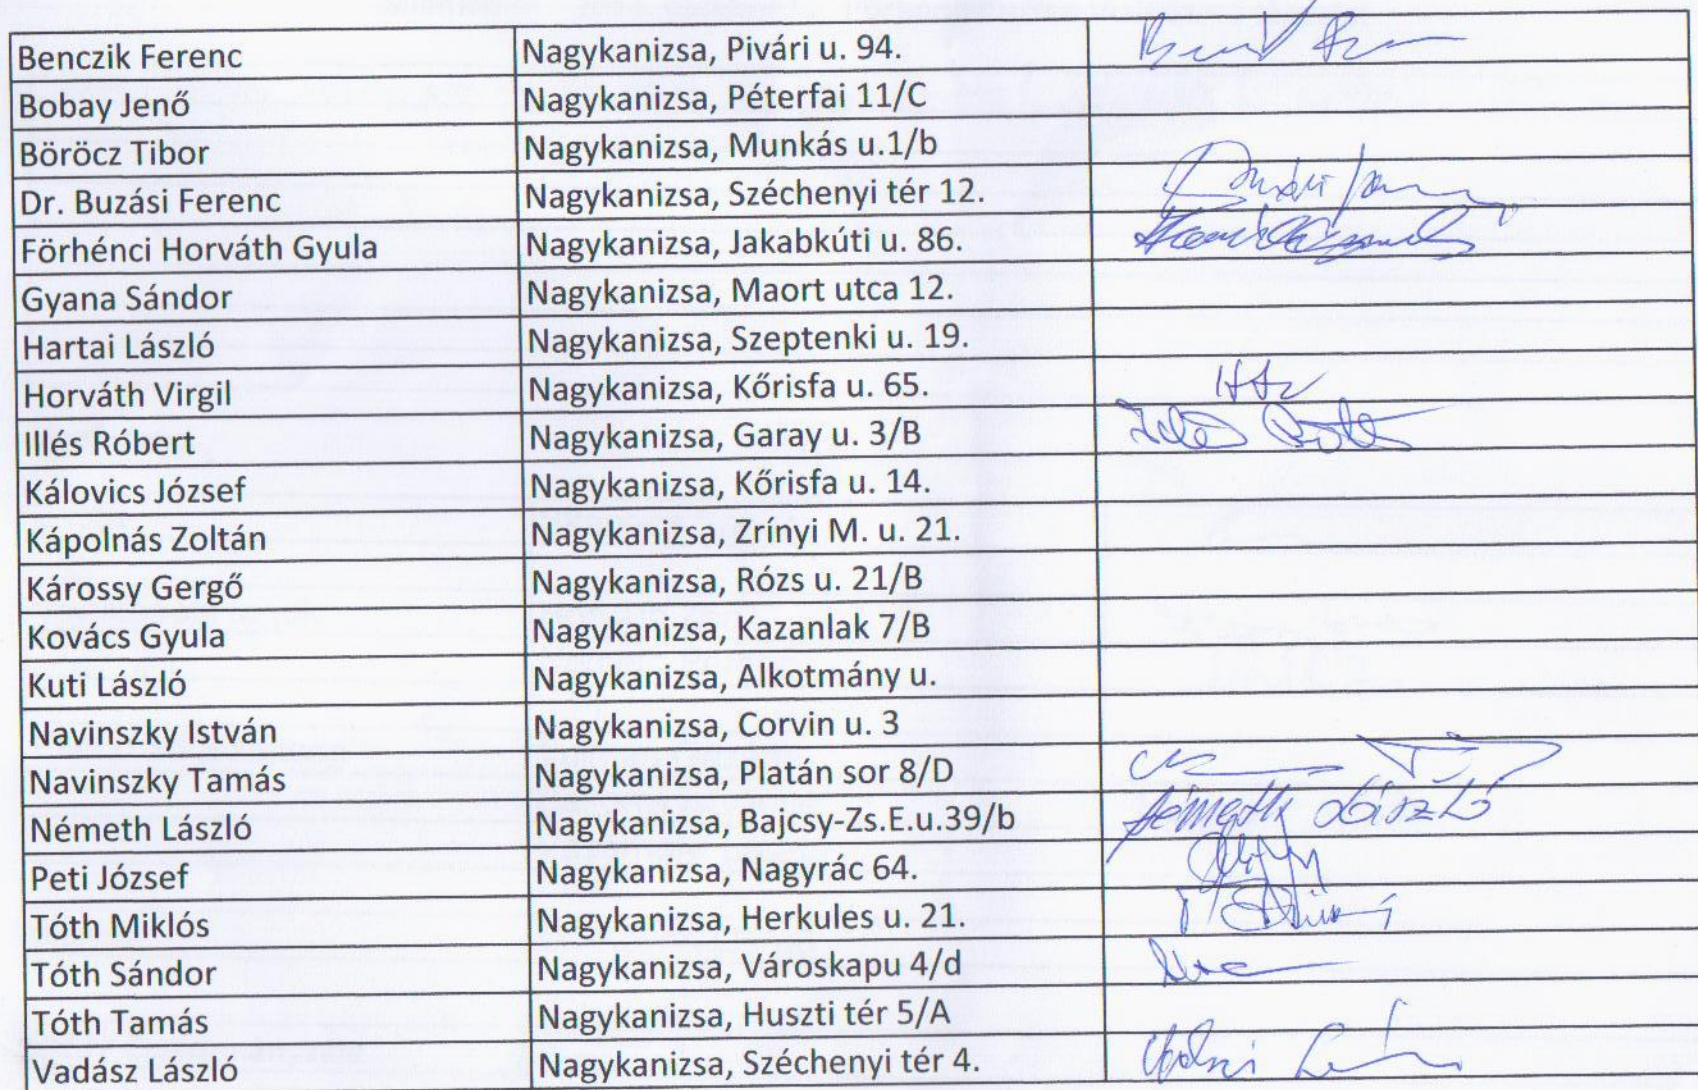 Benczik Ferenc Nagykanizsa, Pivári u. 94.
Bobay Jenő Nagykanizsa, Péterfai 11/C
Böröcz Tibor Nagykanizsa, Munkás u.1/b
Dr. Buzási Ferenc Nagykanizsa, Széchenyi tér 12.
Förhénci Horváth Gyula Nagykanizsa, Jakabkúti u. 86.
Gyana Sándor Nagykanizsa, Maort utca 12.
Hartai László Nagykanizsa, Szeptenki u. 19.
Horváth Virgil Nagykanizsa, Kőrisfa u. 65.
Illés Róbert Nagykanizsa, Garay u. 3/B
Kálovics József Nagykanizsa, Kőrisfa u. 14.
Kápolnás Zoltán Nagykanizsa, Zrínyi M. u. 21.
Károssy Gergő Nagykanizsa, Rózs u. 21/B
Kovács Gyula Nagykanizsa, Kazanlak 7/B
Kuti László Nagykanizsa, Alkotmány u.
Navinszky István Nagykanizsa, Corvin u. 3
Navinszky Tamás Nagykanizsa, Platán sor 8/D
Németh László Nagykanizsa, Bajcsy-Zs.E.u.39/b Németh László
Peti József Nagykanizsa, Nagyrác 64.
Tóth Miklós Nagykanizsa, Herkules u. 21.
Tóth Sándor Nagykanizsa, Városkapu 4/d
Tóth Tamás Nagykanizsa, Huszti tér 5/A
Vadász László Nagykanizsa, Széchenyi tér 4.